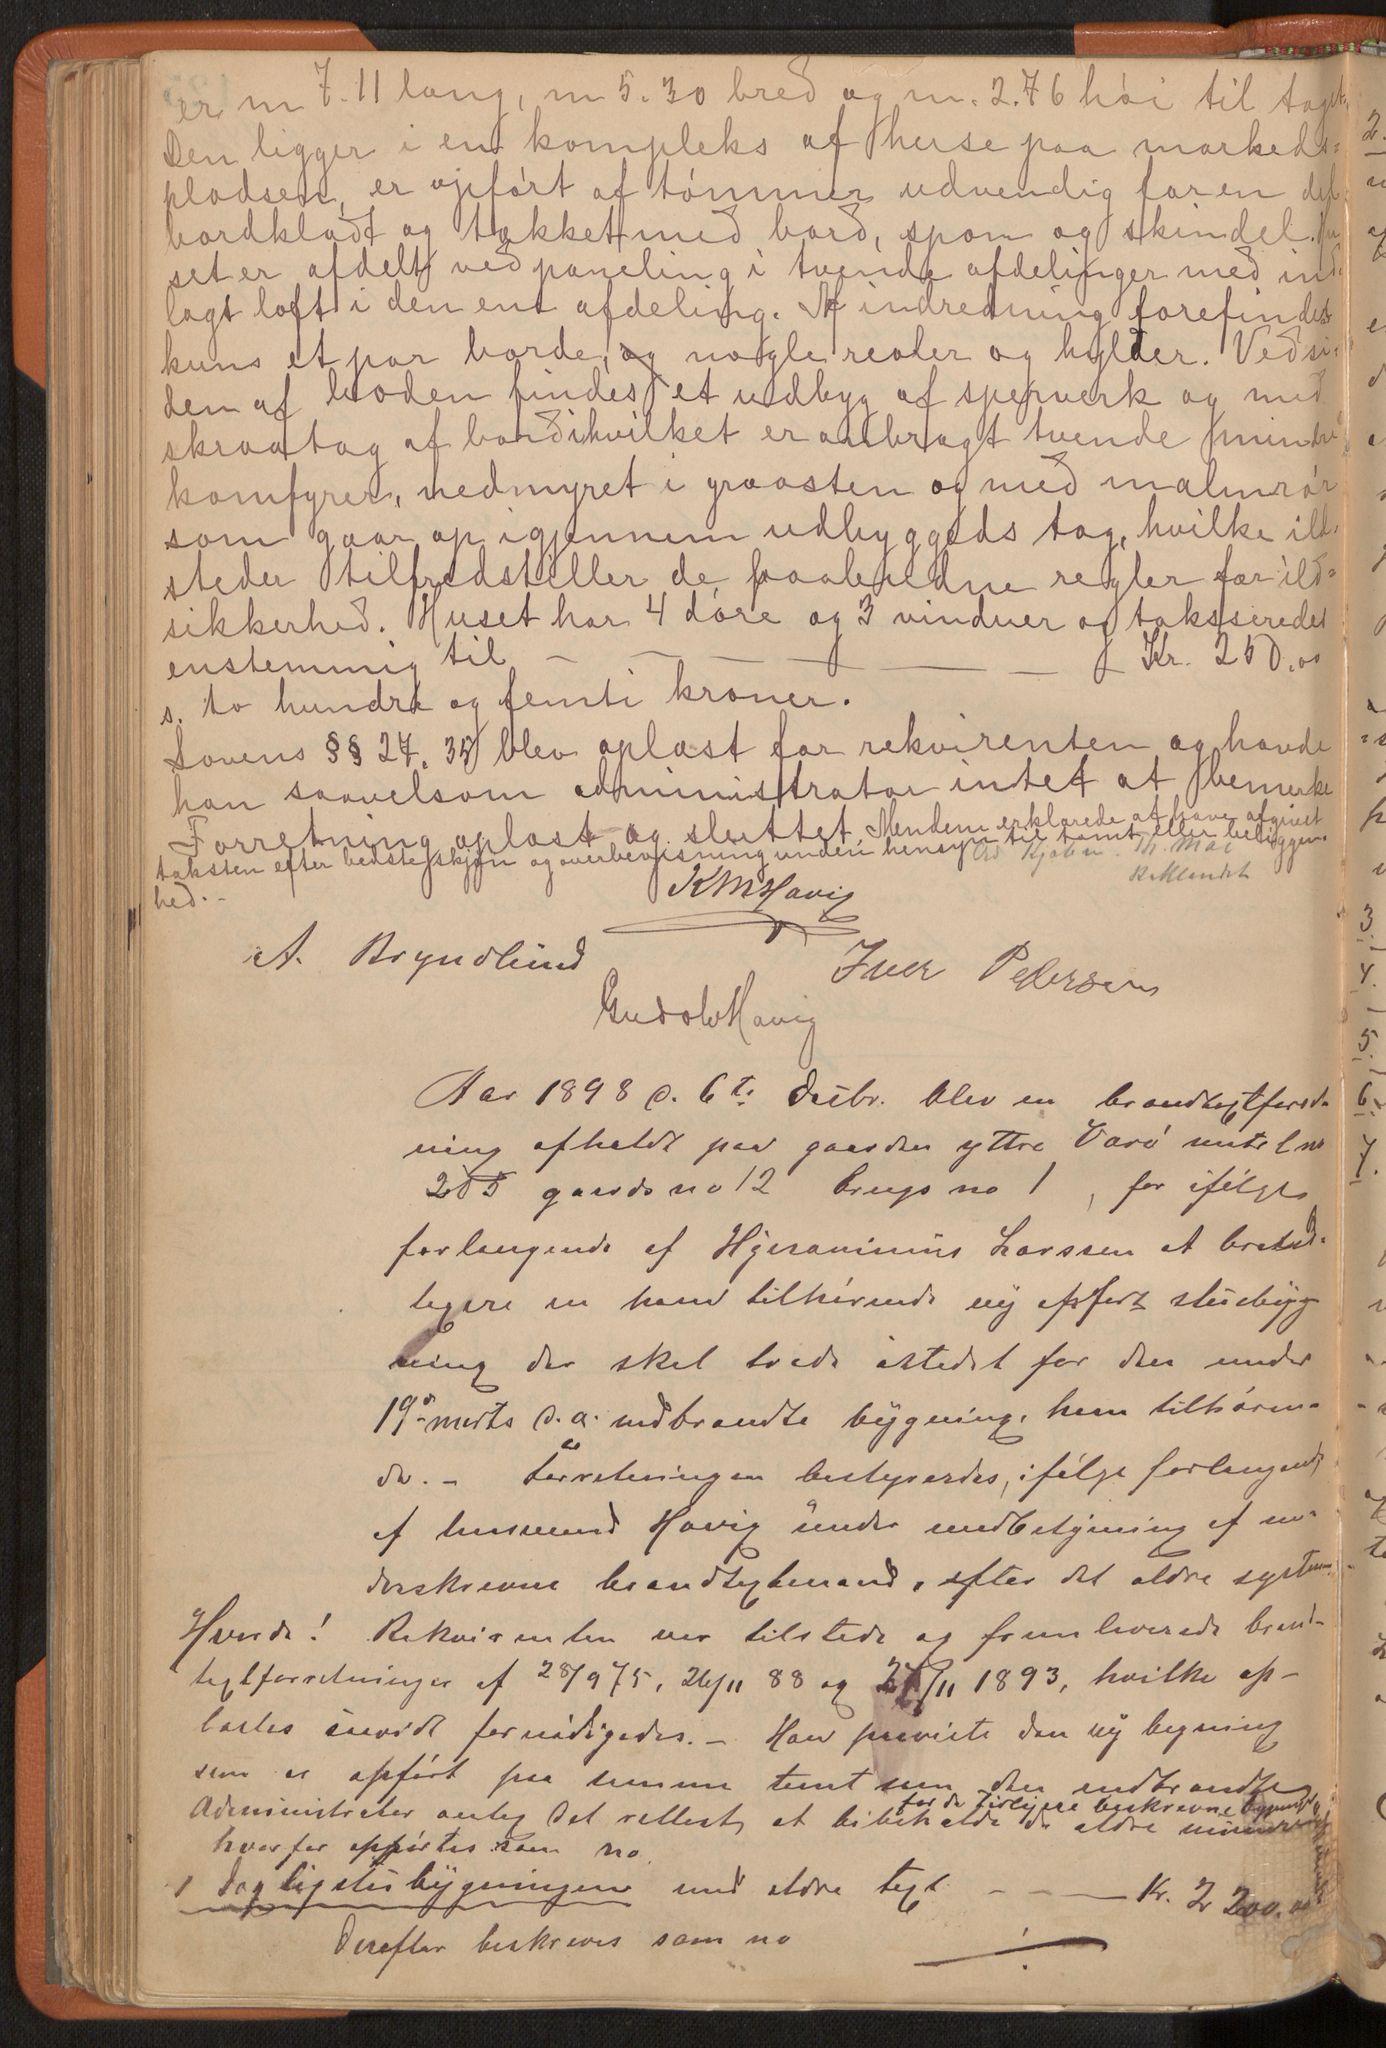 er m 7.11 lang, m 5.30 bred og m. 2.76 høi til taget.
Den ligger i en kompleks af huse paa markeds-
pladsen, er opført af tømmer udvendig for en del
bordklædt og tækket med bord, spon og skindel. Hu-
set er afdelt ved paneling i tvende afdelinger med ind-
lagt loft i den ene afdeling. Af indredning forefindes
kuns et par borde, og nogle reoler og hylder. Ved si-
den af boden findes et udbyg af sperverk og med
skraatag af bord ihvilket er anbragt tvende mindre
komfyrer, nedmyret i graasten og med malmrør
som gaar op igjennem udbyggeds tag, hvilke ild-
steder tilfredstiller de paabudne regler for ild-
sikkerhed. Huset har 4 døre og 3 vinduer og taksseredes
enstemmig til — — — — — Kr. 250.00
s. to hundre og femti kroner.
Lovens §§ 27. 35 blev oplæst for rekvirenten og havde
han saavelsom administrator intet at bemerke
Forretning oplæst og sluttet. Mendene erklærede at have afgivet
taksten efter bedste skjøn og overbevisning uden hensyn til tomt eller beliggen-
hed.-
KMHavig
A. Bryndlund
Iver Pedersen
Gudolv Havig
Aar 1898 d. 6te desbr. blev en brandtaxtforret-
ning afholdt paa gaarden yttre Varø matrl no
205 gaards no 12 brugs no 1, for ifølge
forlangende af Hjeronimus Larssen at brand-
taxere en ham tilhørende ny opført stuebyg-
ning der skal træde istedet for den under
19de marts d.a. nedbrændte bygning, ham tilhøren-
de. - Forretningen bestyredes, ifølge forlangende
af lensmand Havig under medbetjening af un-
derskrevne brandtaxtmænd, efter det ældre system.
Hvorda! Rekvirenten var tilstede og fremleverede brand-
taxtforretninger af 28/9 75, 26/11 88 og 27/11 1893, hvilke op-
læstes saavidt fornødigedes. - Han paaviste den ny bygning
som er opført paa samme tomt som den nedbrændte
for de tidligere beskrevne bygninger
Administrator antog det rettest at bibeholde de ældre numre
hvorfor opførtes som no
1 Dagligstubygningen med ældre taxt - - — Kr. 2 200.00
Derefter beskreves som no